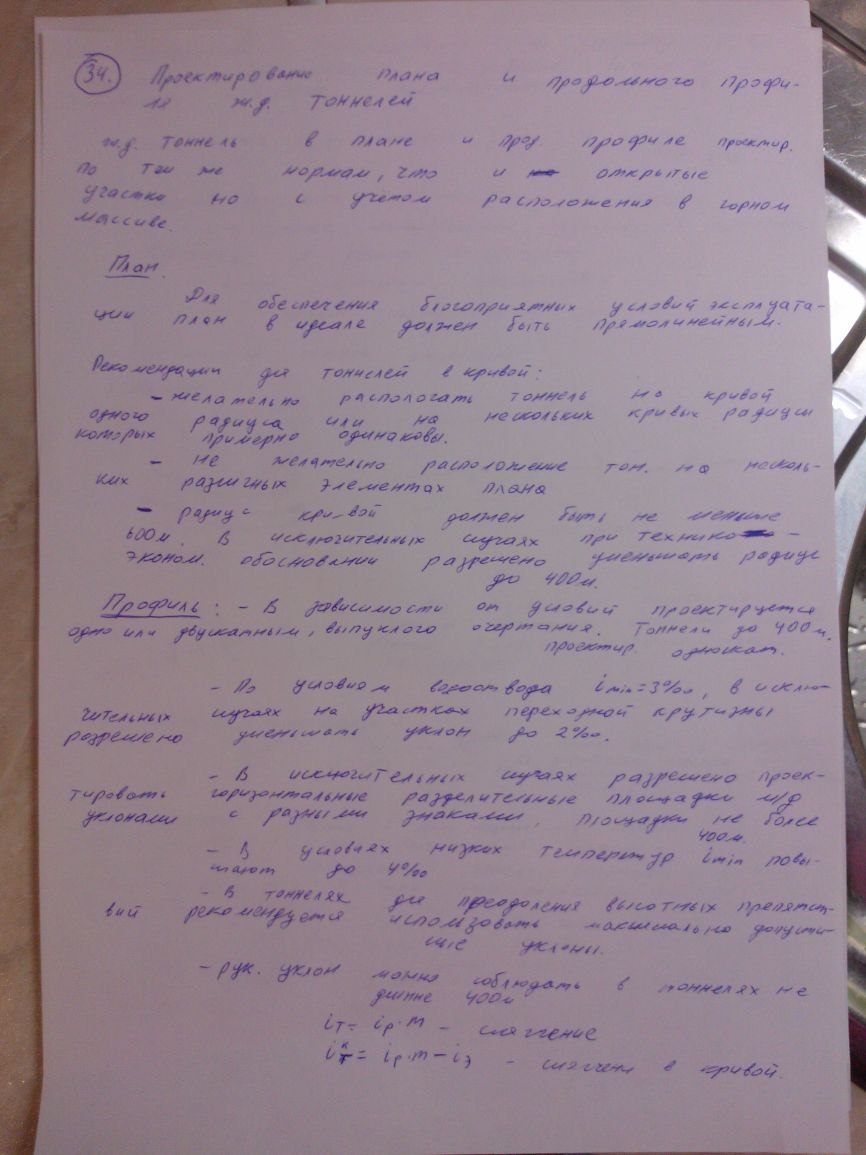 34. Проектирование плана и продольного профи-
ля ж.д. тоннелей
ж.д. тоннель в плане и прод. профиле проектир.
по тем же нормам, что и открытые
участки но с учетом расположения в горном
массиве.
План.
Для обеспечения благоприятных условий эксплуата-
ции план в идеале должен быть прямолинейным.
Рекомендации для тоннелей в кривой:
- желательно распологать тоннель на кривой
одного радиуса или на нескольких кривых радиусы
которых примерно одинаковы.
- не желательно расположение тон. на несколь-
ких различных элементах плана
- радиус кривой должен быть не меньше
600м. В исключительных случаях при технико-
эконом. обосновании разрешено уменьшать радиус
до 400м.
Профиль: - В зависимости от условий проектируется
одно или двускатным, выпуклого очертания. Тоннели до 400м.
проектир. односкат.
- По условиям водоотвода imin=3‰, в исклю-
чительных случаях на участках переходной крутизны
разрешено уменьшать уклон до 2‰.
- В исключительных случаях разрешено проек-
тировать горизонтальные разделительные площадки м/д
уклонами с разными знаками, площадки не более
400м.
- В условиях низких температур imin повы-
шают до 4‰
- В тоннелях для преодоления высотных препятст-
вий рекомендуется использовать максимально допусти-
мые уклоны.
- рук. уклон можно соблюдать в тоннелях не
длинне 400м
iт = iр·m - смягчение
iкт = iр·m - iэ - смягчени в кривой.